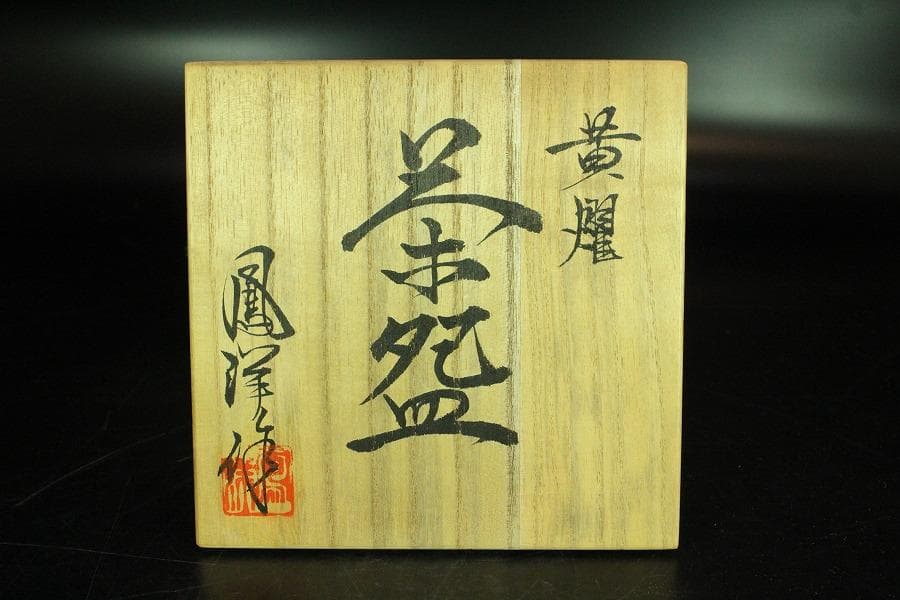 黄曜
茶盌
鳳洋作